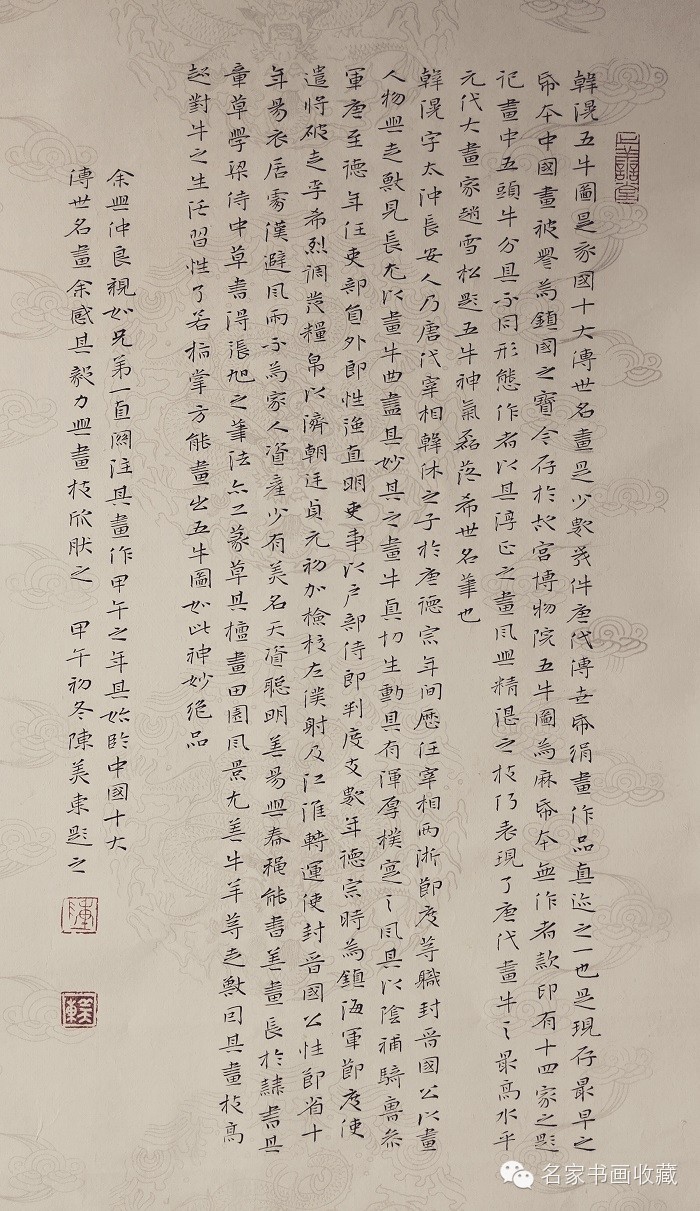 韓滉五牛圖是我國十大傳世名畫是少數幾件唐代傳世紙絹畫作品真跡之一也是現存最早之
紙本中國畫被譽為鎮國之寶今存於故宮博物院五牛圖為麻紙本無作者款印有十四家之題
記畫中五頭牛分具不同形態作者以其淳正之畫風與精湛之技巧表現了唐代畫牛之最高水平
元代大畫家趙雪松題五牛神氣磊落希世名筆也
韓滉字太沖長安人乃唐代宰相韓休之子於唐德宗年間歷任宰相兩浙節度等職封晉國公以畫
人物與走獸見長尤以畫牛曲盡其妙其之畫牛真切生動具有渾厚樸實之風其以陰補騎曹參
軍唐至德年任吏部員外郎性漁直明吏事以戶部侍郎判度支數年德宗時為鎮海軍節度使
遣將破走李希烈調發糧帛以濟朝廷貞元初加檢校左僕射及江淮轉運使封晉國公性節省十
年易衣居家漢避風雨不為家人資產少有美名天資聰明善易與春秋能書善畫長於隸書其
章草學梁侍中草書得張旭之筆法亦工篆草其擅畫田園風景尤善牛羊等走獸因其畫技高
超對牛之生活習性了若指掌方能畫出五牛圖如此神妙絕品
余與仲良視如兄弟一直關注其畫作甲午之年其始臨中國十大
傳世名畫余感其毅力與畫技欣朕之 甲午初冬陳美東題之
陳
名家书画收藏